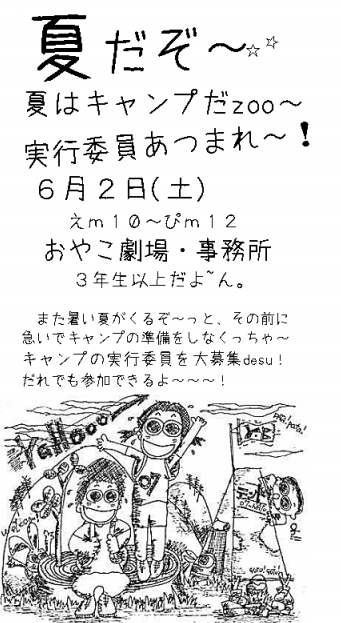 夏だぞ～☆☆
夏はキャンプだzoo～
実行委員あつまれ～！
６月２日(土)
えｍ１０～ぴｍ１２
おやこ劇場・事務所
３年生以上だよ~ん。
また暑い夏がくるぞ～っと、その前に
急いでキャンプの準備をしなくっちゃ～
キャンプの実行委員を大募集desu！
だれでも参加できるよ～～～！
YaHooo